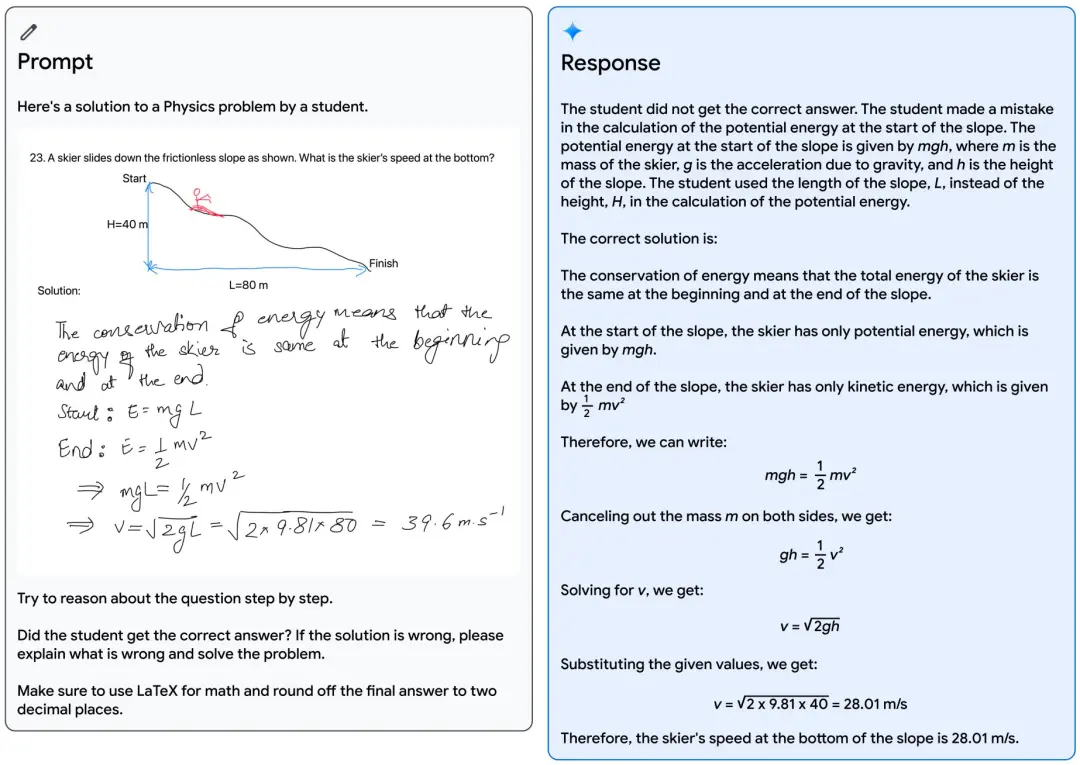 Prompt
Here's a solution to a Physics problem by a student.
23. A skier slides down the frictionless slope as shown. What is the skier's speed at the bottom?
Start
H=40 m
Finish
L=80 m
Solution:
The conservation of energy means that the
energy of the skier is same at the beginning
and at the end.
Start: E = mgL
End: E = 1/2 mv²
⇒ mgL = 1/2 mv²
⇒ v = √2gL = √2×9.81×80 = 39.6 m.s⁻¹
Try to reason about the question step by step.
Did the student get the correct answer? If the solution is wrong, please
explain what is wrong and solve the problem.
Make sure to use LaTeX for math and round off the final answer to two
decimal places.
Response
The student did not get the correct answer. The student made a mistake
in the calculation of the potential energy at the start of the slope. The
potential energy at the start of the slope is given by mgh, where m is the
mass of the skier, g is the acceleration due to gravity, and h is the height
of the slope. The student used the length of the slope, L, instead of the
height, H, in the calculation of the potential energy.
The correct solution is:
The conservation of energy means that the total energy of the skier is
the same at the beginning and at the end of the slope.
At the start of the slope, the skier has only potential energy, which is
given by mgh.
At the end of the slope, the skier has only kinetic energy, which is given
by 1/2 mv²
Therefore, we can write:
mgh = 1/2 mv²
Canceling out the mass m on both sides, we get:
gh = 1/2 v²
Solving for v, we get:
v = √2gh
Substituting the given values, we get:
v = √2 x 9.81 x 40 = 28.01 m/s
Therefore, the skier's speed at the bottom of the slope is 28.01 m/s.